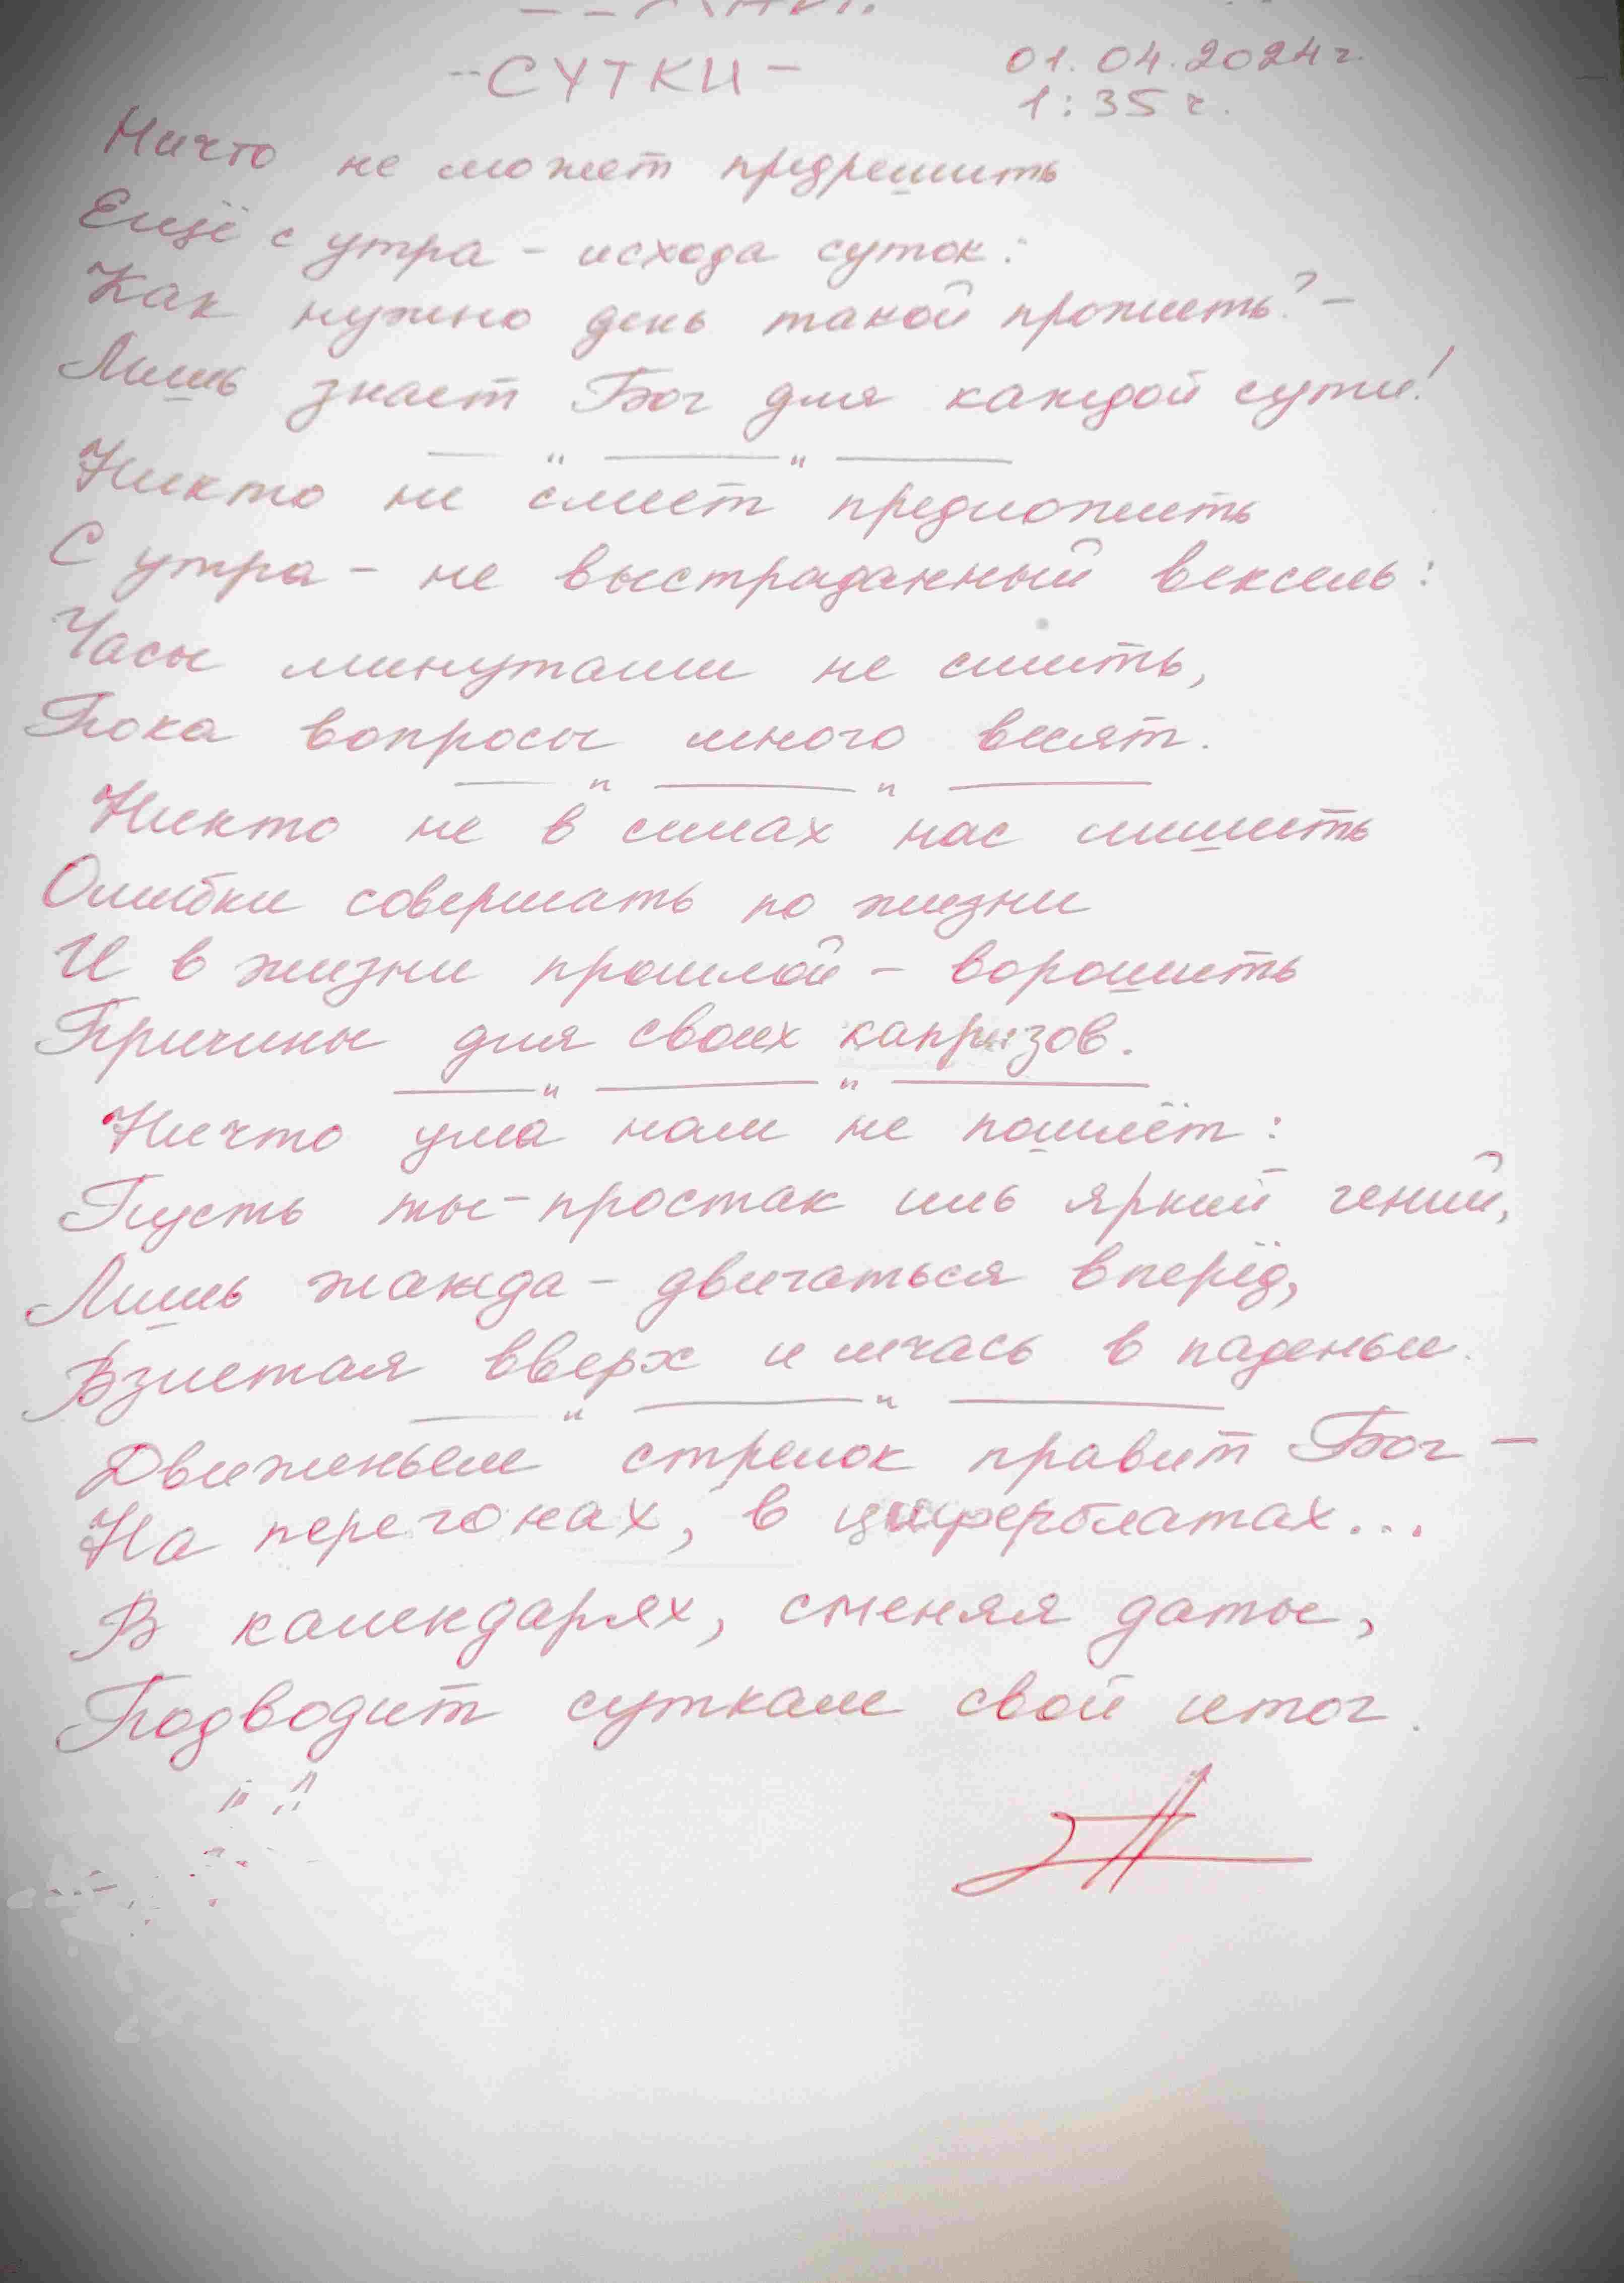 -СУТКИ-
01.04.2024г.
1:35 г.
Ничто не может предрешить
Ещё с утра - исхода суток:
Как нужно день такой прожить? -
Лишь знает Бог для каждой сути!
— " — " —
Никто не смеет предложить
С утра - не выстраданный вексель:
Часы минутами не сшить,
Пока вопросы много весят.
— " — " —
Никто не в силах нас лишить
Ошибки совершать по жизни
И в жизни прошлой - ворошить
Причины для своих капризов.
— " — " —
Ничто ума нам не пошлёт:
Пусть ты - простак иль яркий гений,
Лишь жажда - двигаться вперёд,
Взлетая вверх и мчась в паденьи.
— " — " —
Движеньем стрелок правит Бог -
На перегонах, в циферблатах...
В календарях, сменяя даты,
Подводит суткам свой итог.